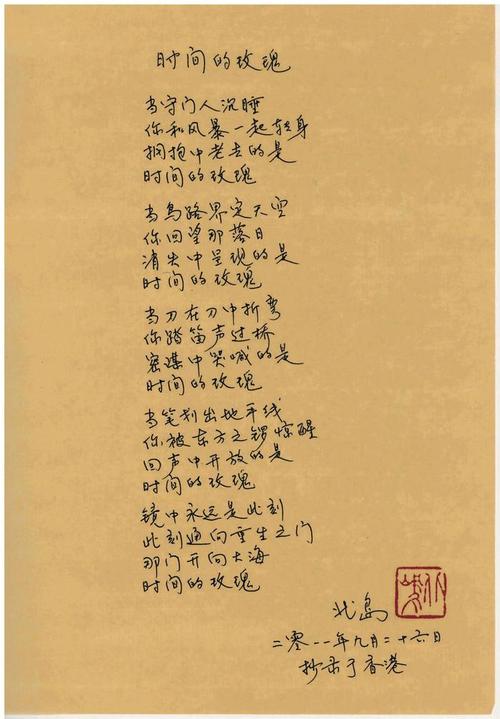 时间的玫瑰
当守门人沉睡
你和风暴一起转身
拥抱中老去的是
时间的玫瑰
当鸟路界定天空
你回望那落日
消失中呈现的是
时间的玫瑰
当刀在刀中折弯
你踏笛声过桥
密谋中哭喊的是
时间的玫瑰
当笔划出地平线
你被东方之锣惊醒
回声中开放的是
时间的玫瑰
镜中永远是此刻
此刻通向重生之门
那门开向大海
时间的玫瑰
北岛
二零一一年九月二十六日
抄录于香港